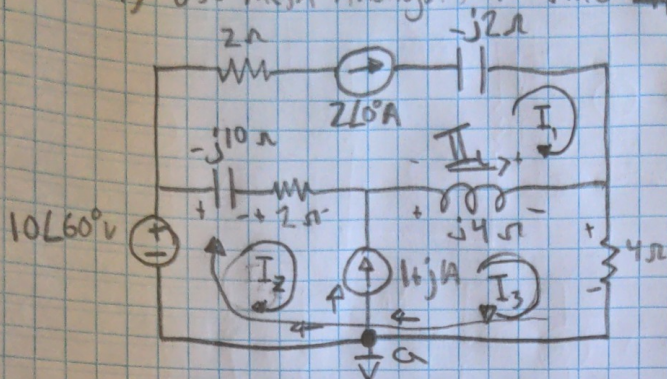 2Ω
-j2Ω
2∠0°A
I₁
-j10Ω
- I_L +
+ - + 2Ω -
+ j4Ω -
10∠60°v
+
-
I₂
1+jA
I₃
+
4Ω
-
G